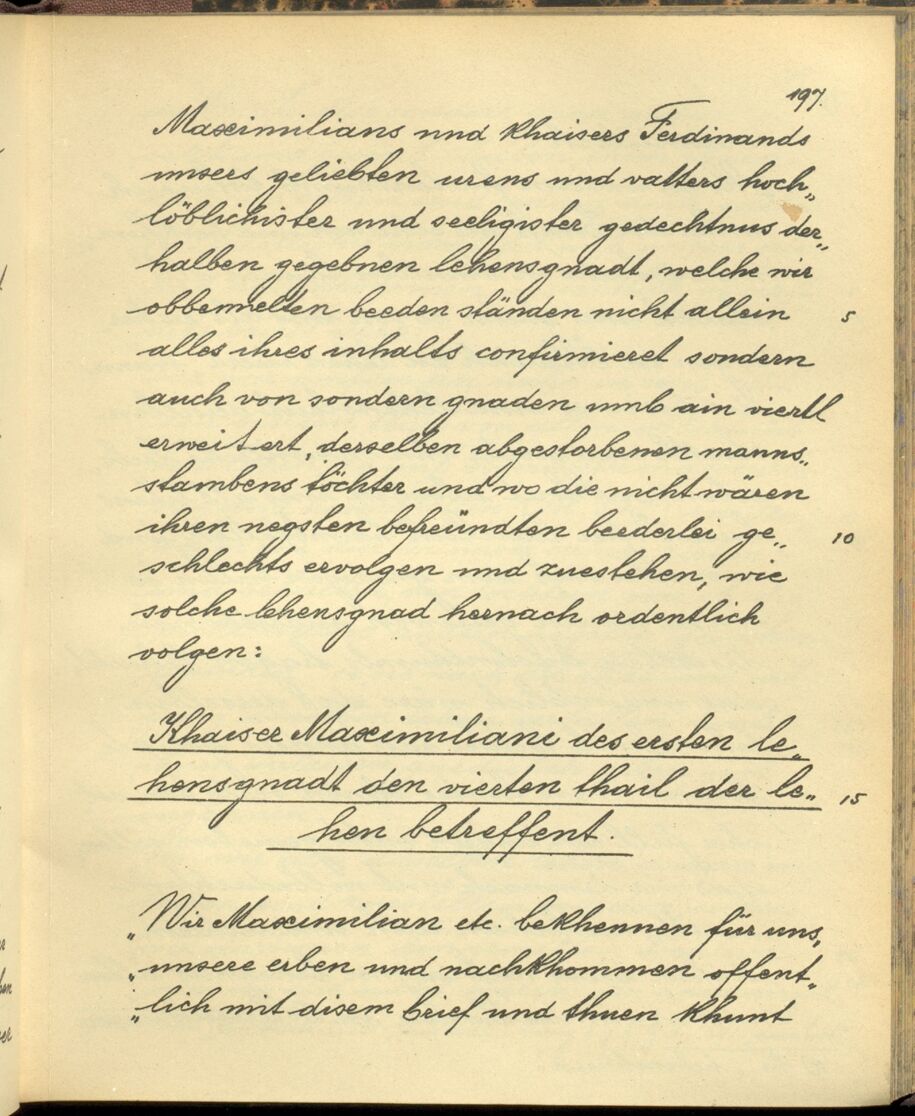 197.
Maximilians und khaisers Ferdinands
unsers geliebten urens und vatters hoch„
löblichister und seeligister gedechtnus der„
halben gegebnen lehensgnadt, welche wir
obbemelten beeden ständen nicht allein 5
alles ihres inhalts confirmieret sondern
auch von sondern gnaden umb ain viertl
erweitert, derselben abgestorbenen manns„
stambens töchter und wo die nicht wären
ihren negsten befreündten beederlei ge„ 10
schlechts ervolgen und zuestehen, wie
solche lehensgnad hernach ordentlich
volgen:
Khaiser Maximiliani des ersten le„
hensgnadt den vierten thail der le„ 15
hen betreffent.
„Wir Maximilian etc. bekhennen für uns,
„unsere erben und nachkhommen offent„
„lich mit disem brief und thuen khunt